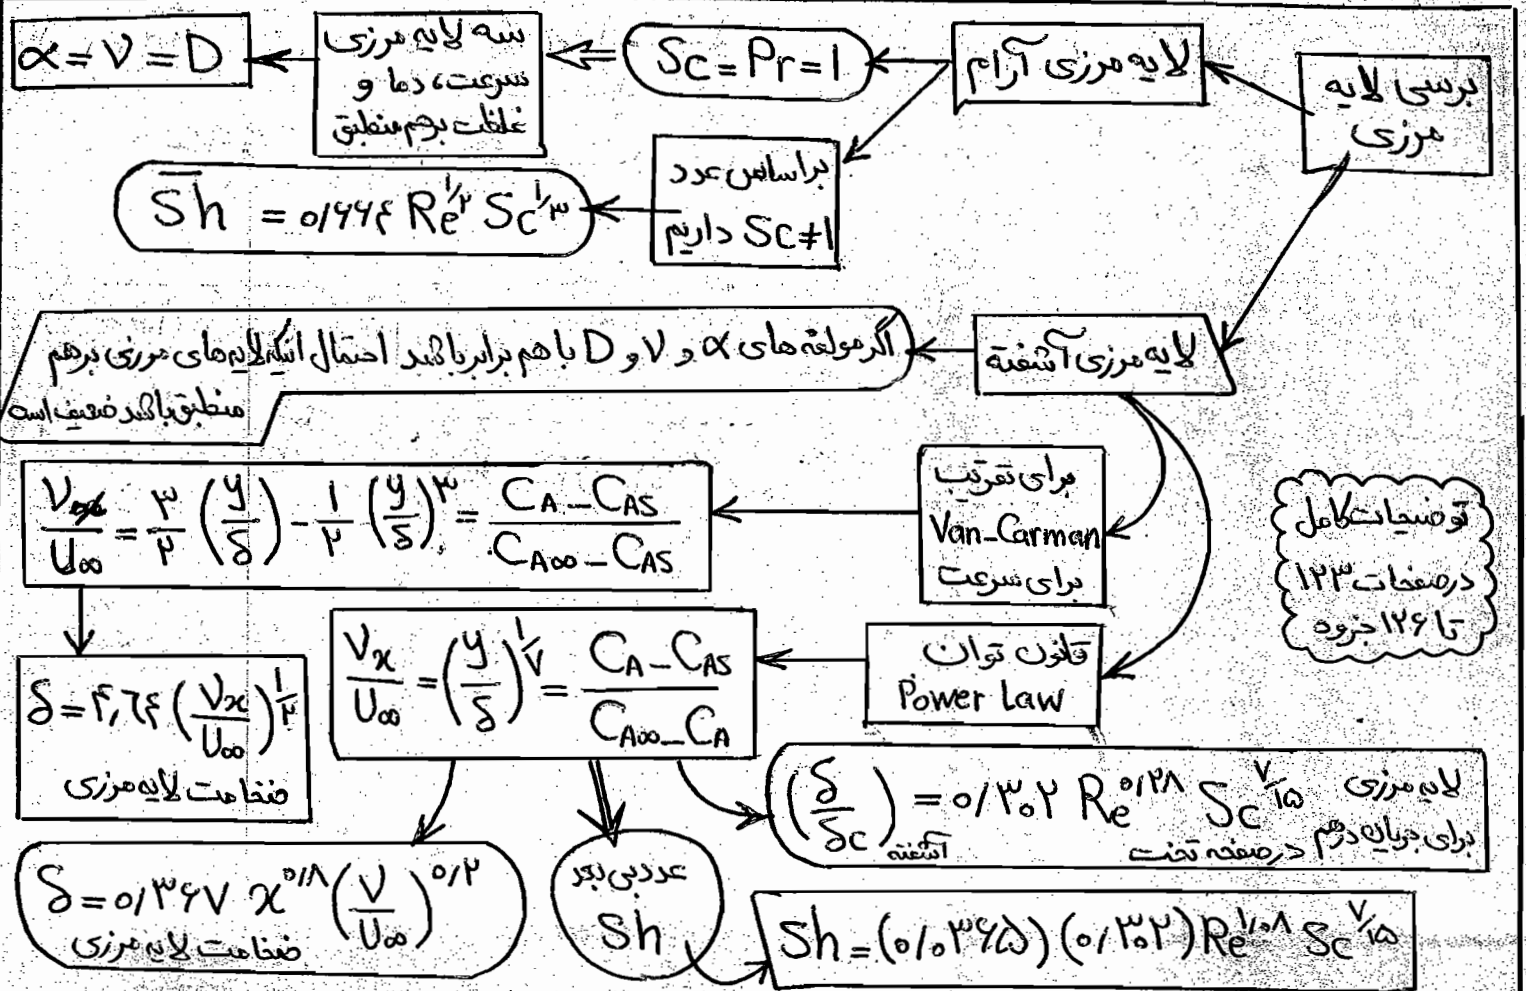 بررسی لایه
مرزی
لایه مرزی آرام
Sc = Pr = 1
سه لایه مرزی
سرعت، دما و
غلظت برهم منطبق
α = ν = D
براساس عدد
Sc≠1 داریم
Sh = ۰/۶۶۴ Re^۱/۲ Sc^۱/۳
لایه مرزی آشفته
اگر مولفه های α و ν و D با هم برابر باشد احتمال اینکه لایه های مرزی برهم
منطبق باشد ضعیف است
برای تقریب
Van-Carman
برای سرعت
Vx/U∞ = ۳/۲ (y/δ) - ۱/۲ (y/δ)^۳ = (CA - CAS)/(CA∞ - CAS)
توضیحات کامل
در صفحات ۱۲۳
تا ۱۲۶ جزوه
قانون توان
Power Law
Vx/U∞ = (y/δ)^۱/۷ = (CA - CAS)/(CA∞ - CA)
δ = ۴,۶۴ (νx/U∞)^۱/۲
ضخامت لایه مرزی
(δ/δc) آشفته = ۰/۳۰۲ Re^۰/۲۸ Sc^۷/۱۵
لایه مرزی
برای جریان درهم در صفحه تخت
δ = ۰/۳۶۷ x^۰/۸ (ν/U∞)^۰/۲
ضخامت لایه مرزی
عدد بی بعد
Sh
Sh = (۰/۰۳۶۵) (۰/۳۰۲) Re^۱/۰۸ Sc^۷/۱۵